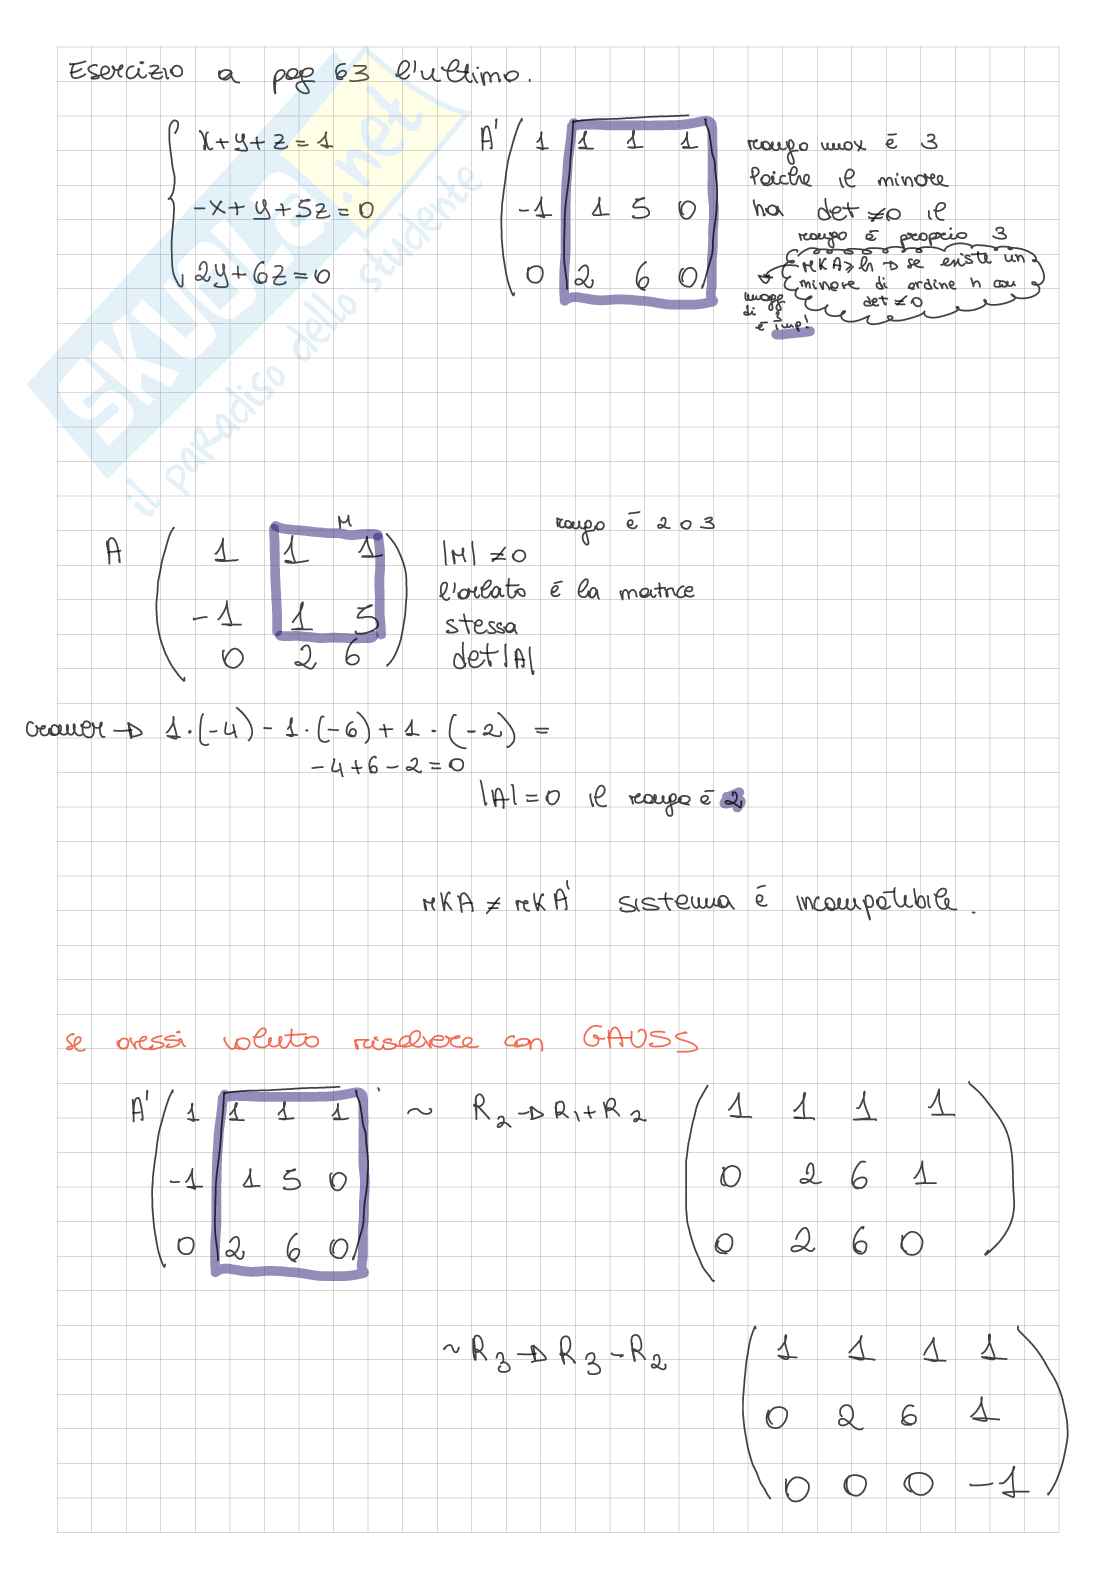 Esercizio a pag 63 l'ultimo.
x+y+z=1
-x+y+5z=0
2y+6z=0
A' ( 1 1 1 1
-1 1 5 0
0 2 6 0 )
rango max è 3
Poichè il minore
ha det ≠0 il
rango è proprio 3
rKA≥h → se existe un
minore di ordine h con
det ≠0
di 3
è imp!
SKUOLA.net
il paradiso dello studente
rango è 2 o 3
M
A ( 1 1 1
-1 1 5
0 2 6 )
|M| ≠0
l'orlato è la matrice
stessa
det|A|
cramer → 1·(-4) - 1·(-6) + 1·(-2) =
-4+6-2=0
|A|=0 il rango è 2
rKA ≠ rKA' sistema è incompatibile.
se avessi voluto risolvere con GAUSS
A' ( 1 1 1 1
-1 1 5 0
0 2 6 0 )
~ R2 → R1+R2
( 1 1 1 1
0 2 6 1
0 2 6 0 )
~ R3 → R3-R2
( 1 1 1 1
0 2 6 1
0 0 0 -1 )